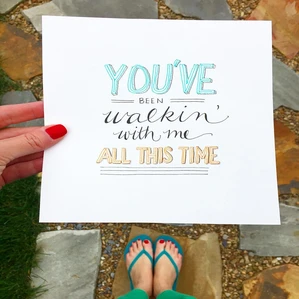 YOU'VE
BEEN
walkin'
with me
ALL THIS TIME